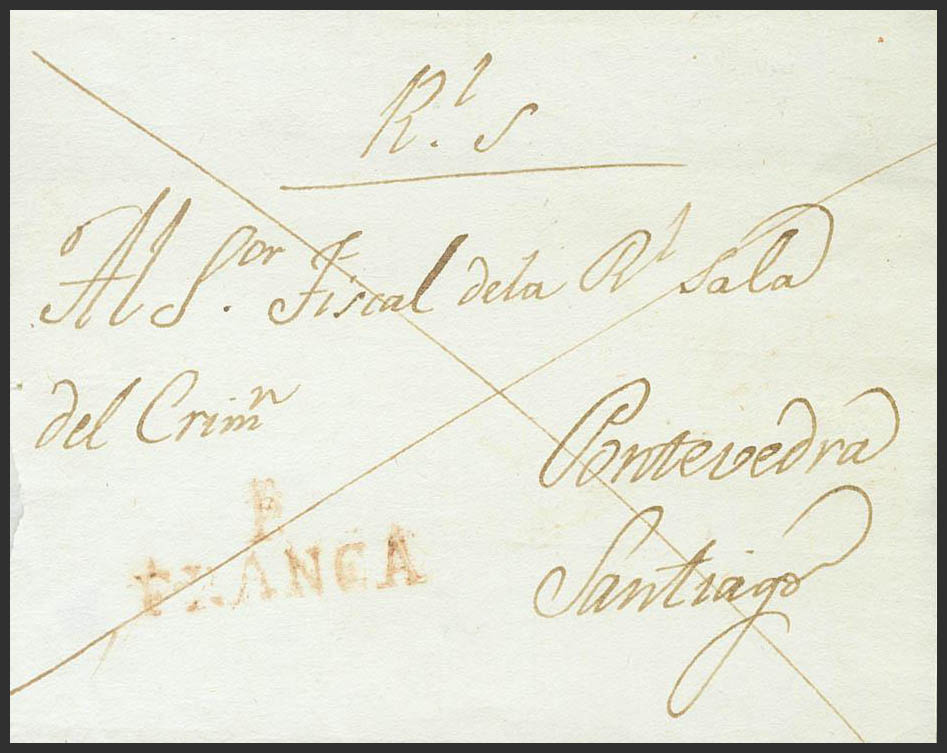 R.l S
Al S.or Fiscal dela Rl Sala
del Crimn
Pontevedra
Santiago
F
FRANCA